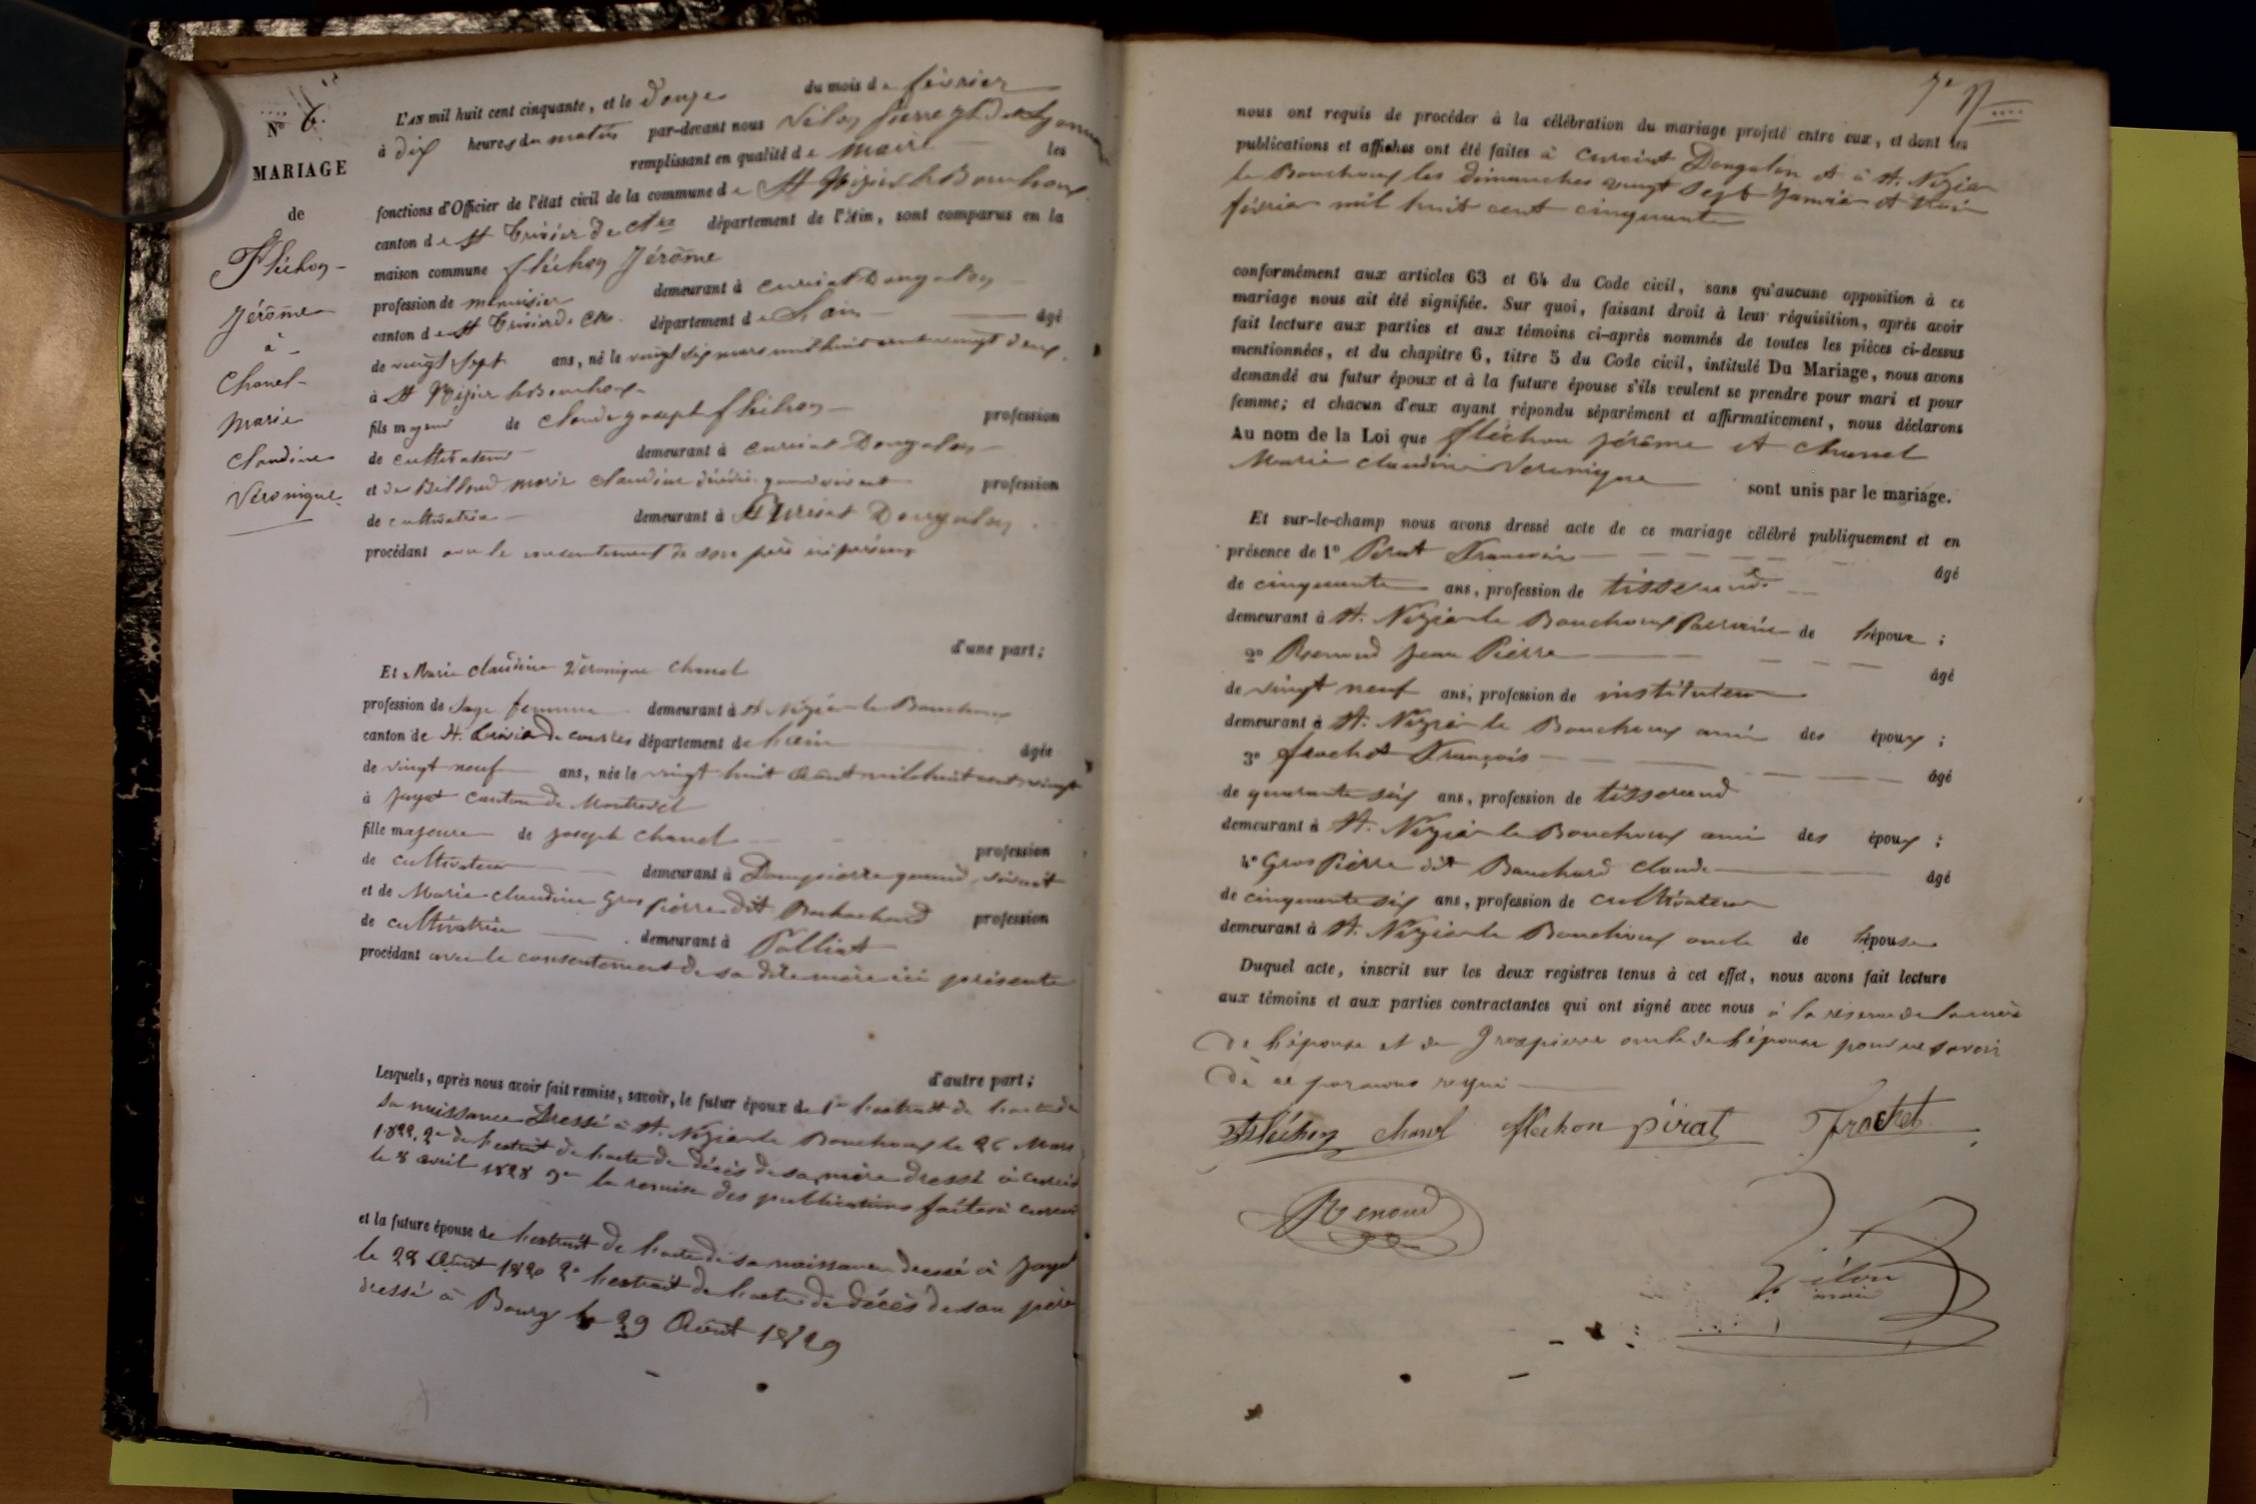 N° 6.
MARIAGE
de
Fléchon
Jérôme
à
Chanel
Marie
Claudine
Véronique
L'AN mil huit cent cinquante, et le Douze du mois de février
à dix heures du matin par-devant nous Vélon pierre
remplissant en qualité de maire les
fonctions d'Officier de l'état civil de la commune de St Nizier le Bouchoux
canton de St Trivier de Ctes département de l'Ain, sont comparus en la
maison commune fléchon Jérôme
profession de menuisier demeurant à curciat Dongalon
canton de St Trivier de Ctes département de L'ain âgé
de vingt sept ans, né le vingt six mars mil huit cent vingt deux
à St Nizier le Bouchoux
fils majeur de claude joseph fléchon profession
de cultivateur demeurant à curciat Dongalon
et de Billoud marie claudine décédée quand vivait profession
de cultivatrice demeurant à Curciat Dongalon
procédant avec le consentement de son père ici présent
d'une part;
Et Marie claudine Véronique Chanel
profession de sage femme demeurant à St Nizier le Bouchoux
canton de St. Trivier de courtes département de l'ain âgée
de vingt neuf ans, née le vingt huit Août mil huit cent vingt
à Jayat canton de Montrevel
fille majeure de joseph Chanel profession
de cultivateur demeurant à Dompierre quand vivait
et de Marie claudine Gros pierre dit profession
de cultivatrice demeurant à Polliat
procédant avec le consentement de sa dite mère ici présente
d'autre part;
Lesquels, après nous avoir fait remise, savoir, le futur époux de 1° l'extrait de l'acte de
sa naissance Dressé à St. Nizier le Bouchoux le 26 Mars
1822. 2° de l'extrait de l'acte de décès de sa mère dressé à curciat
le 8 avril 1828 3° la remise des publications faites à curciat
et la future épouse de l'extrait de l'acte de sa naissance dressé à Jayat
le 28 Août 1820 2° l'extrait de l'acte de décès de son père
dressé à Bourg le 29 Août 1829
nous ont requis de procéder à la célébration du mariage projeté entre eux, et dont les
publications et affiches ont été faites à Curciat Dongalon et à St. Nizier
le Bouchoux les dimanches vingt sept Janvier et trois
février mil huit cent cinquante
conformément aux articles 63 et 64 du Code civil, sans qu'aucune opposition à ce
mariage nous ait été signifiée. Sur quoi, faisant droit à leur réquisition, après avoir
fait lecture aux parties et aux témoins ci-après nommés de toutes les pièces ci-dessus
mentionnées, et du chapitre 6, titre 5 du Code civil, intitulé Du Mariage, nous avons
demandé au futur époux et à la future épouse s'ils veulent se prendre pour mari et pour
femme; et chacun d'eux ayant répondu séparément et affirmativement, nous déclarons
Au nom de la Loi que fléchon jérôme et Chanel
Marie claudine Veronique sont unis par le mariage.
Et sur-le-champ nous avons dressé acte de ce mariage célébré publiquement et en
présence de 1° Pirat François âgé
de cinquante ans, profession de tisserand
demeurant à St. Nizier le Bouchoux de l'époux;
2° Renoud Jean Pierre âgé
de vingt neuf ans, profession de instituteur
demeurant à St. Nizier le Bouchoux ami des époux;
3° frachet François âgé
de quarante six ans, profession de tisserand
demeurant à St. Nizier le Bouchoux ami des époux;
4° Gros Pierre dit Bauchard Claude âgé
de cinquante six ans, profession de cultivateur
demeurant à St. Nizier le Bouchoux oncle de l'épouse
Duquel acte, inscrit sur les deux registres tenus à cet effet, nous avons fait lecture
aux témoins et aux parties contractantes qui ont signé avec nous à la réserve de la mère
de l'épouse et de Grospierre oncle de l'épouse pour ne savoir
de ce par nous requi
Fléchon Chanel fléchon pirat Frachet
Renoud
Vélon
maire